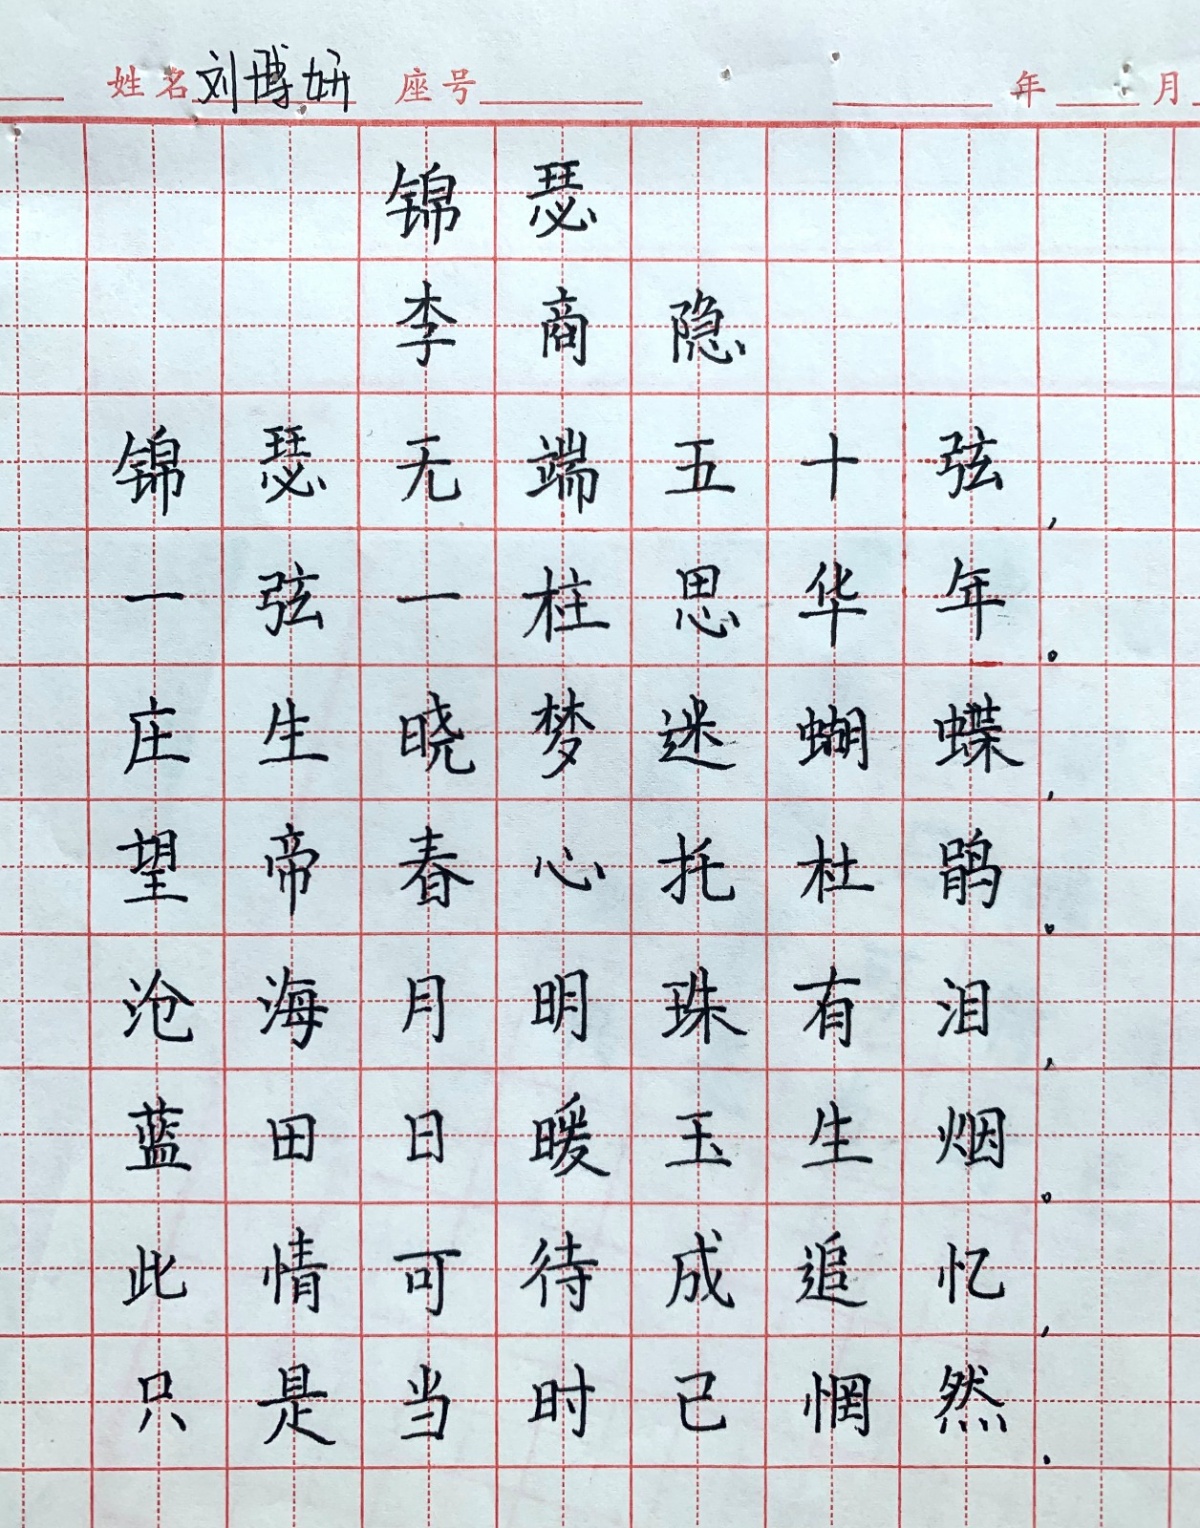 姓名 刘博妍 座号 年 月
锦瑟
李商隐
锦瑟无端五十弦,
一弦一柱思华年。
庄生晓梦迷蝴蝶,
望帝春心托杜鹃。
沧海月明珠有泪,
蓝田日暖玉生烟。
此情可待成追忆,
只是当时已惘然.